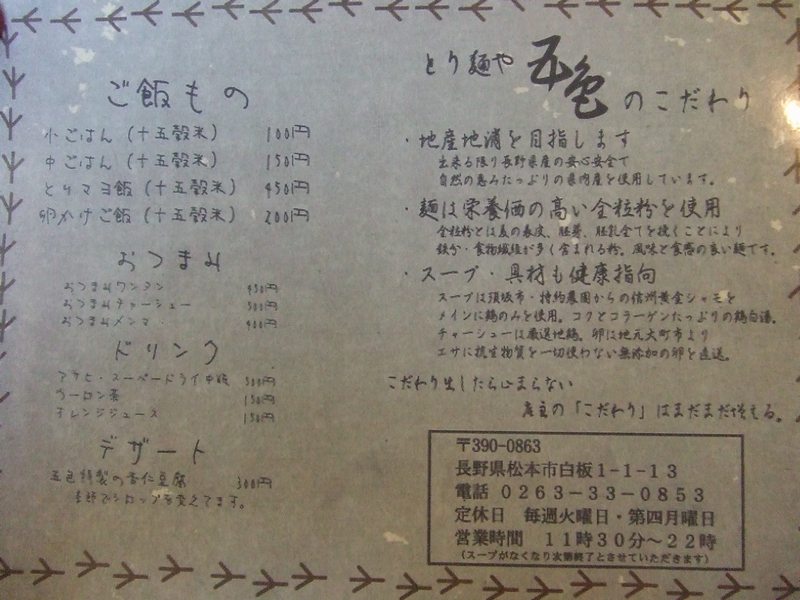 ご飯もの
小ごはん(十五穀米) 100円
中ごはん(十五穀米) 150円
とりマヨ飯(十五穀米) 450円
卵かけご飯(十五穀米) 200円
おつまみ
おつまみワンタン
おつまみチャーシュー
おつまみメンマ
ドリンク
アサヒ・スーパードライ中瓶 500円
ウーロン茶 150円
オレンジジュース 150円
デザート
五色特製の杏仁豆腐 300円
季節でシロップを変えてます。
とり麺や 五色 のこだわり
・地産地消を目指します
出来る限り長野県産の安心安全で
自然の恵みたっぷりの県内産を使用しています。
・麺は栄養価の高い全粒粉を使用
全粒粉とは麦の表皮、胚芽、胚乳全てを挽くことにより
鉄分・食物繊維が多く含まれる粉。風味と食感の良い麺です。
・スープ・具材も健康指向
スープは須坂市・特約農園からの信州黄金シャモを
メインに鶏のみを使用。コクとコラーゲンたっぷりの鶏白湯。
チャーシューは厳選地鶏。卵は地元大町市より
エサに抗生物質を一切使わない無添加の卵を直送。
こだわり出したら止まらない
店主の「こだわり」はまだまだ増える。
〒390-0863
長野県松本市白板1-1-13
電話 0263-33-0853
定休日 毎週火曜日・第四月曜日
営業時間 11時30分~22時
(スープがなくなり次第終了とさせていただきます)